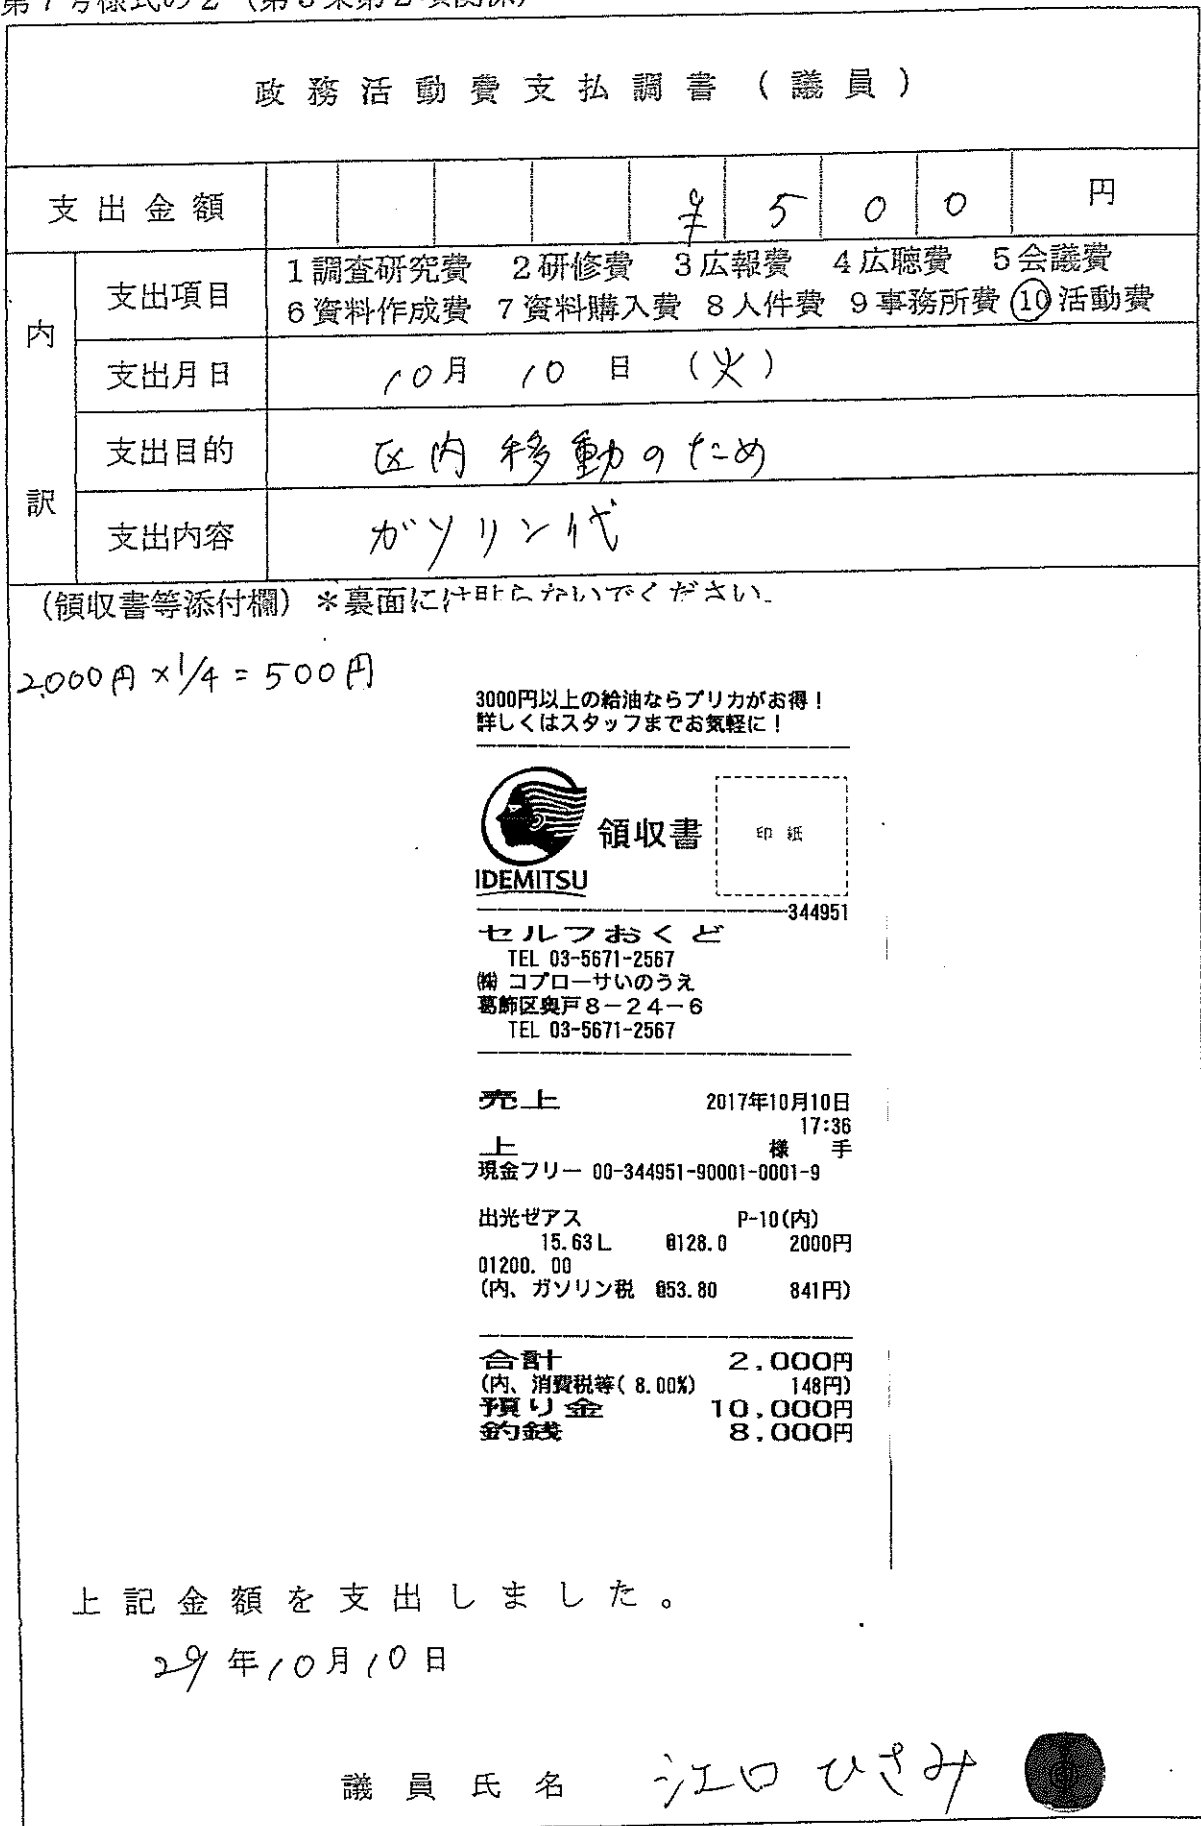 第7号様式の2（第8条第2項関係）
政務活動費支払調書（議員）
支出金額 ¥500円
内訳
支出項目 1調査研究費 2研修費 3広報費 4広聴費 5会議費
6資料作成費 7資料購入費 8人件費 9事務所費 ⑩活動費
支出月日 10月10日（火）
支出目的 区内移動のため
支出内容 ガソリン代
（領収書等添付欄）＊裏面には貼らないでください。
2000円×1/4=500円
3000円以上の給油ならプリカがお得！
詳しくはスタッフまでお気軽に！
領収書 印紙
IDEMITSU
344951
セルフおくど
TEL 03-5671-2567
㈱ コプローサいのうえ
葛飾区奥戸8-24-6
TEL 03-5671-2567
売上 2017年10月10日
17:36
上 様 手
現金フリー 00-344951-90001-0001-9
出光ゼアス P-10(内)
15.63L @128.0 2000円
01200.00
(内、ガソリン税 @53.80 841円)
合計 2,000円
(内、消費税等( 8.00%) 148円)
預り金 10,000円
釣銭 8,000円
上記金額を支出しました。
29年10月10日
議員氏名 江口ひさみ